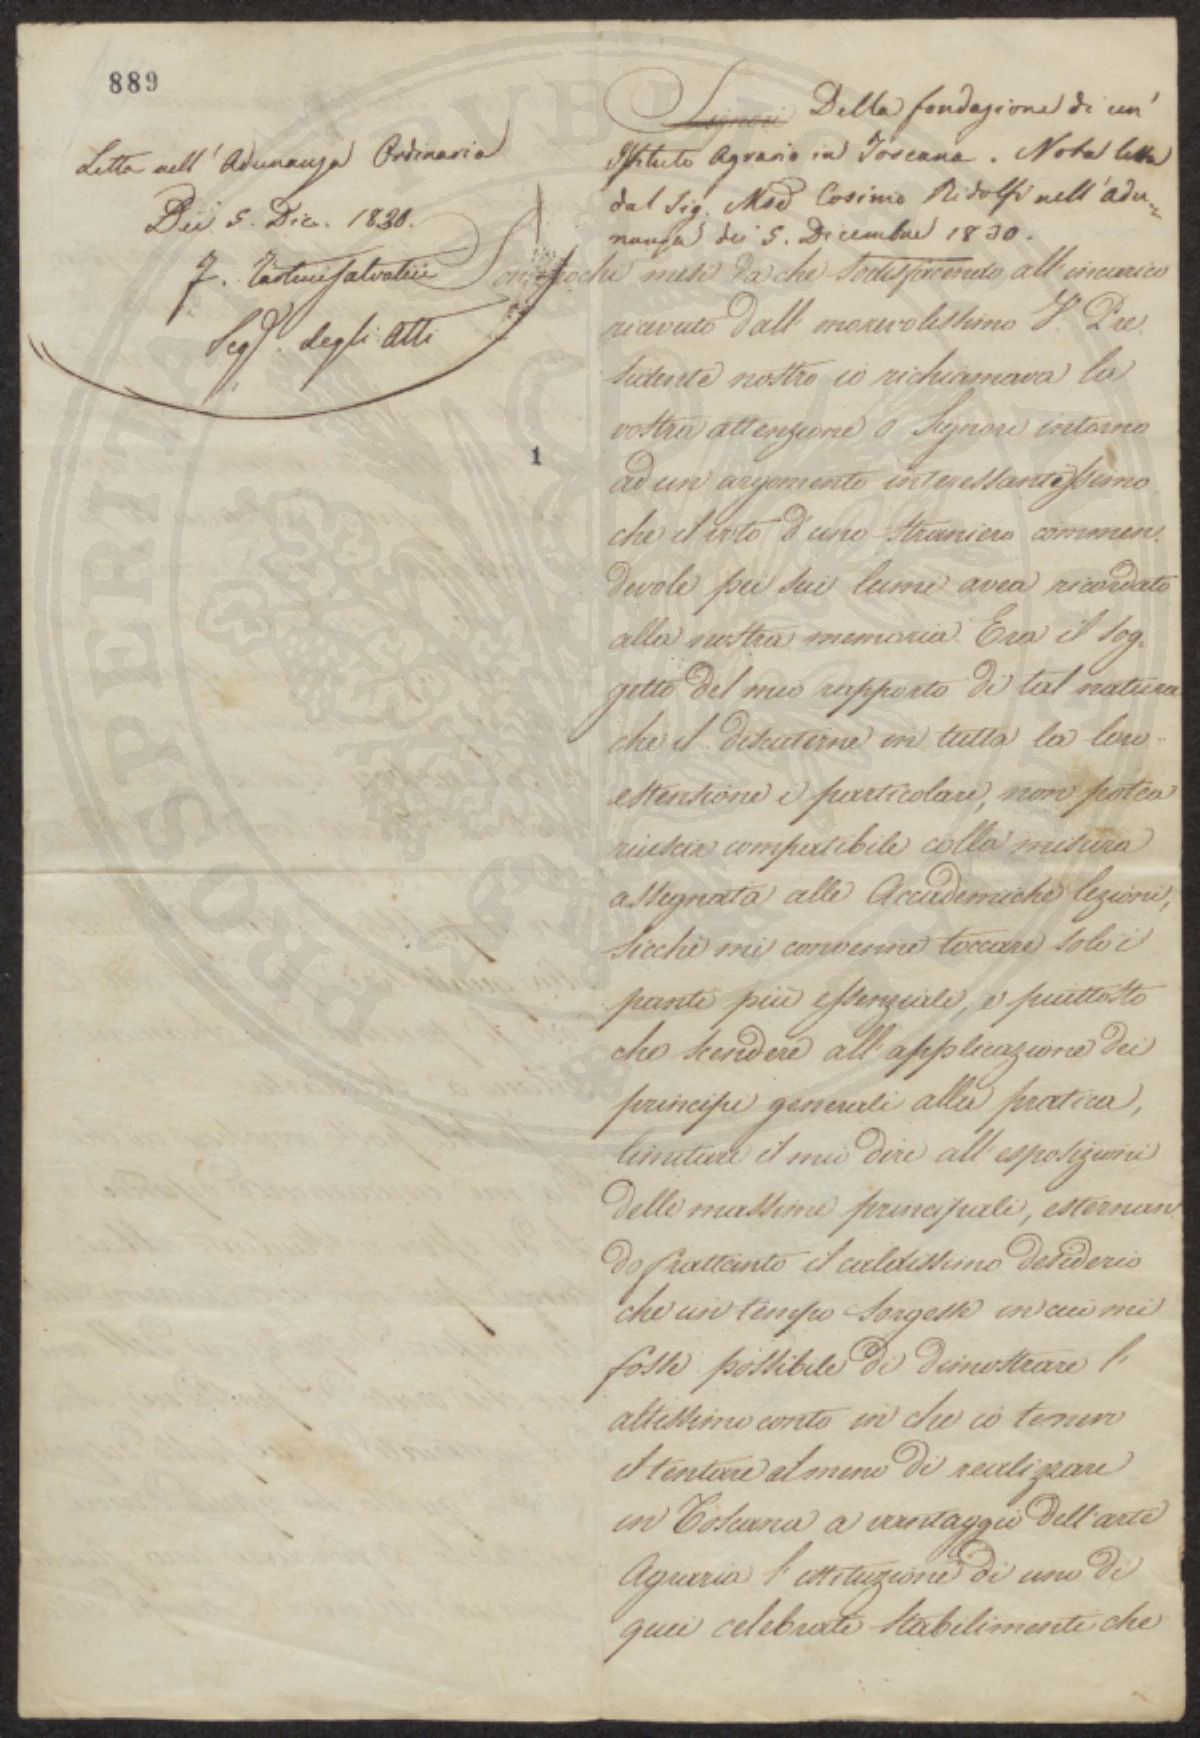 889
Letta nell'Adunanza Ordinaria
Dei 5. Dic. 1830.
F. Tartini Salvatici
Seg.º degli Atti
1
Signori Della fondazione di un'
Istituto Agrario in Toscana. Nota letta
dal Sig. Mse Cosimo Ridolfi nell'adu=
nanza dei 5. Dicembre 1830.
Son pochi mesi da che sodisfacendo all'incarico
ricevuto dall'onorevolissimo V. Pre.
sidente nostro io richiamava la
vostra attenzione o Signori intorno
ad un argomento interessantissimo
che il voto d'uno straniero commen.
devole pei suoi lumi avea ricordato
alla nostra memoria. Era il sog.
getto del mio rapporto di tal natura
che il discuterne in tutta la loro
estensione i particolari, non potea
riuscir compatibile colla misura
assegnata alle Accademiche lezioni,
sicchè mi convenne toccare solo i
punti più essenziali, e piuttosto
che scendere all'applicazione dei
principi generali alla pratica,
limitare il mio dire all'esposizioni
delle massime principali, esternan
do frattanto il caldissimo desiderio
che un tempo sorgesse in cui mi
fosse possibile di dimostrare l'
altissimo conto in che io teneva
il tentare almeno di realizzare
in Toscana a vantaggio dell'arte
Agraria l'istituzione di uno di
quei celebrati stabilimenti che
PROSPERITATI PUBLICAE